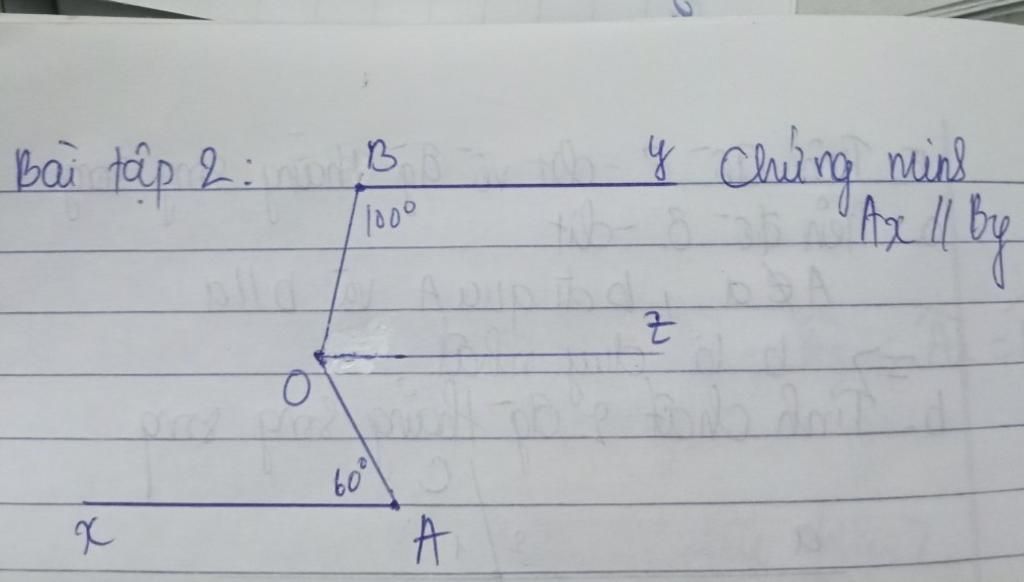 Bài tập 2: B y Chứng minh
100° Ax // By
z
O
60°
x A